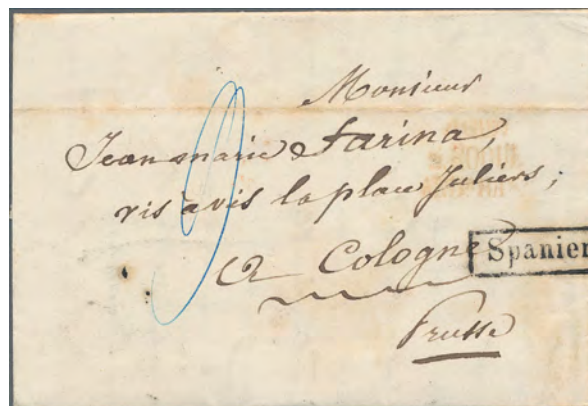 Monsieur
Jean marie Farina,
vis à vis la place Juliers;
a Cologne
Spanien
Prusse